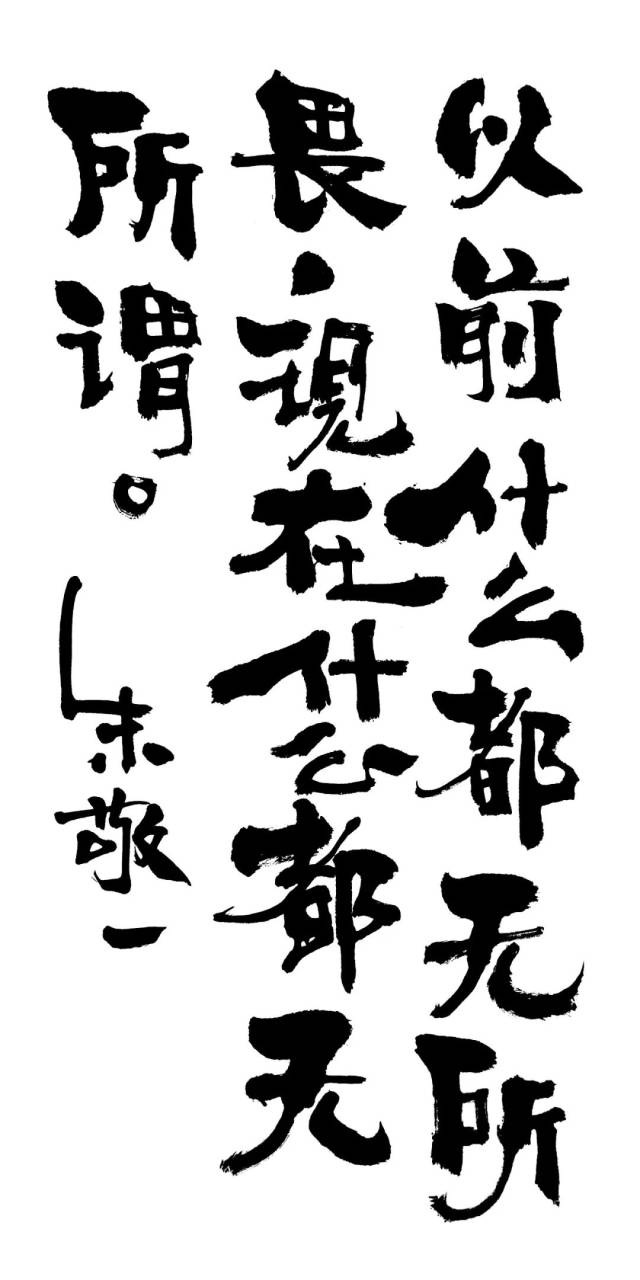 以前什么都无所
畏，现在什么都无
所谓。
朱敬一